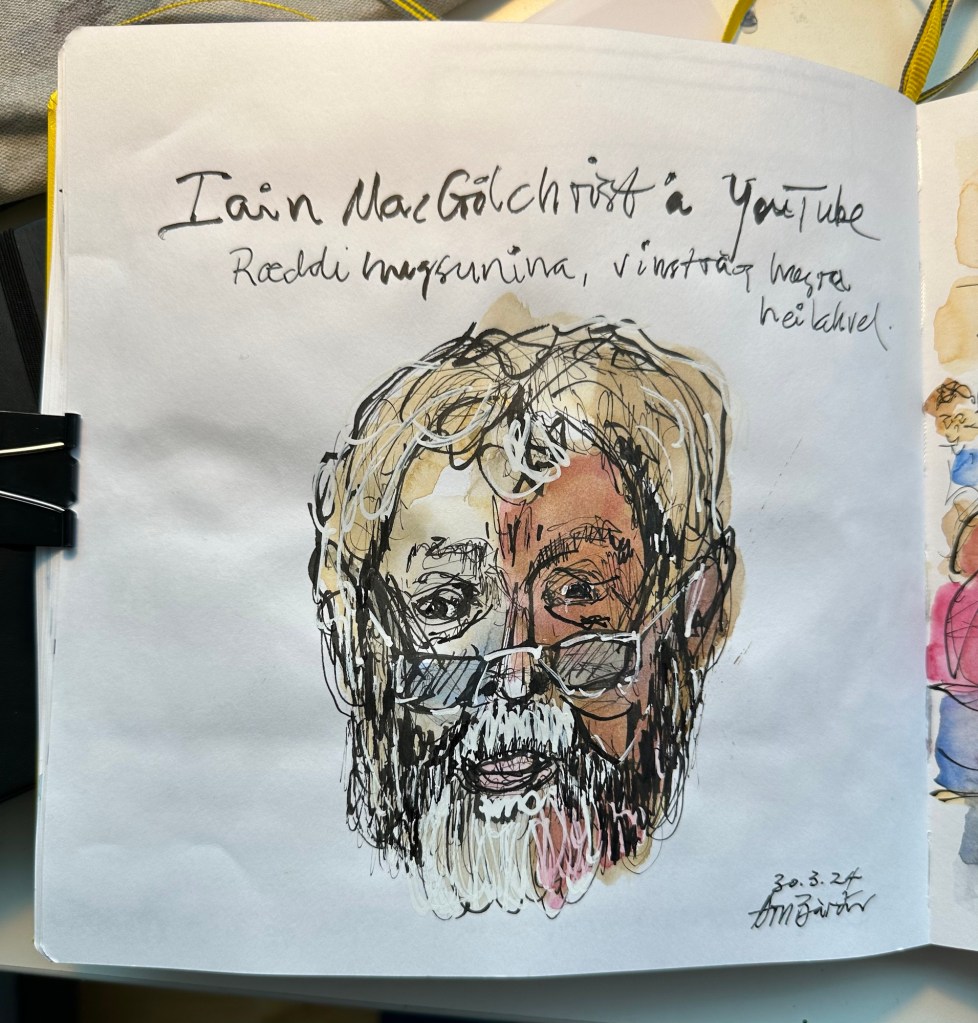 Iain MacGilchrist á YouTube
Ræddi hugsunina, vinstra og hægra
heilahvel.
30.3.24